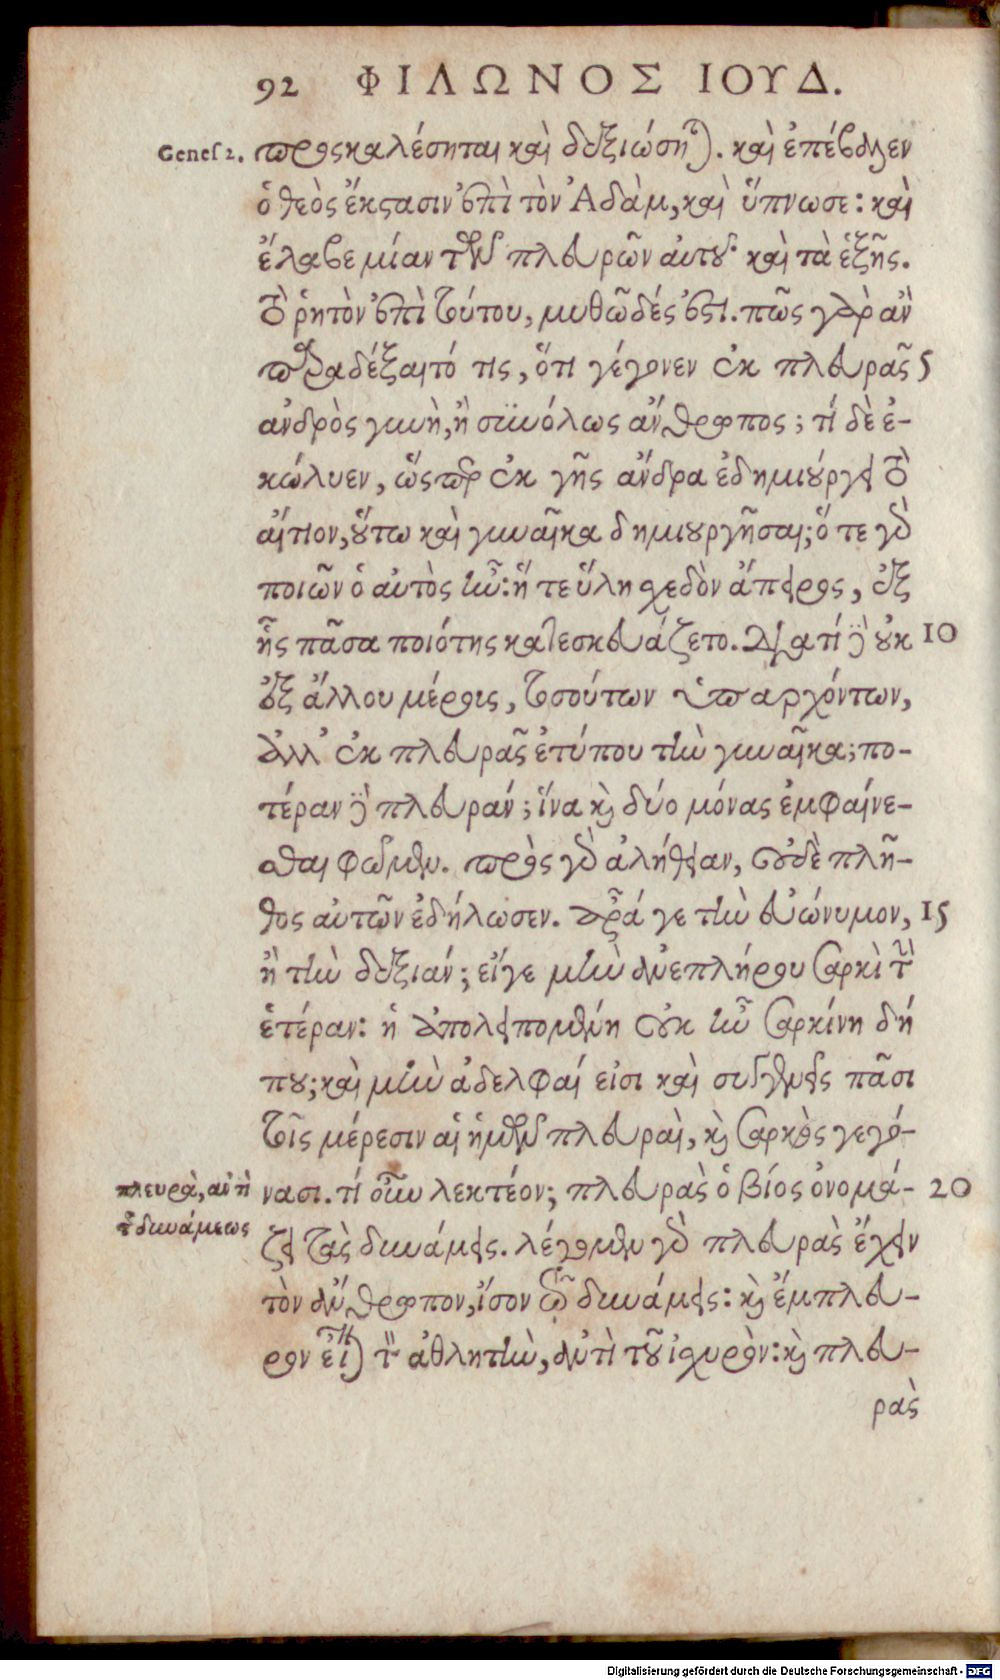 92 ΦΙΛΩΝΟΣ ΙΟΥΔ.
Genes 2. προςκαλέσηται καὶ δεξιώσηται. καὶ ἐπέβαλεν
ὁ θεὸς ἔκστασιν ἐπὶ τὸν Ἀδὰμ, καὶ ὕπνωσε: καὶ
ἔλαβε μίαν τῶν πλευρῶν αὐτοῦ καὶ τὰ ἑξῆς.
τὸ ῥητὸν ἐπὶ τούτου, μυθῶδές ἐστι. πῶς γὰρ ἂν
παραδέξαιτό τις, ὅτι γέγονεν ἐκ πλευρᾶς 5
ἀνδρὸς γυνὴ, ἢ συνόλως ἄνθρωπος; τί δὲ ἐ-
κώλυεν, ὥςπερ ἐκ γῆς ἄνδρα ἐδημιούργει τὸ
αἴτιον, οὕτω καὶ γυναῖκα δημιουργῆσαι; ὅ τε γὰρ
ποιῶν ὁ αὐτὸς ἦν: ἥ τε ὕλη σχεδὸν ἄπειρος, ἐξ
ἧς πᾶσα ποιότης κατεσκευάζετο. διατί δὲ οὐκ 10
ἐξ ἄλλου μέρους, τοσούτων ὑπαρχόντων,
ἀλλ' ἐκ πλευρᾶς ἐτύπου τὴν γυναῖκα; πο-
τέραν δὲ πλευράν; ἵνα καὶ δύο μόνας ἐμφαίνε-
σθαι φῶμεν. πρὸς γὰρ ἀλήθειαν, οὐδὲ πλῆ-
θος αὐτῶν ἐδήλωσεν. ἆρά γε τὴν εὐώνυμον, 15
ἢ τὴν δεξιάν; εἴγε μὴν ἀνεπλήρου σαρκὶ τὴν
ἑτέραν: ἡ ἀπολειπομένη οὐκ ἦν σαρκίνη δή
που; καὶ μὴν ἀδελφαί εἰσι καὶ συγγενεῖς πᾶσι
τοῖς μέρεσιν αἱ ἡμῶν πλευραὶ, καὶ σαρκὸς γεγό-
πλευρὰ, ἀντὶ νασι. τί οὖν λεκτέον; πλευρὰς ὁ βίος ὀνομά- 20
τ͂ δυνάμεως ζει τὰς δυνάμεις. λέγομεν γὰρ πλευρὰς ἔχειν
τὸν ἄνθρωπον, ἴσον τῷ δυνάμεις: καὶ ἔμπλευ-
ρον εἶναι τὸν ἀθλητὴν, ἀντὶ τοῦ ἰσχυρὸν: καὶ πλευ-
ρὰς
Digitalisierung gefördert durch die Deutsche Forschungsgemeinschaft - DFG